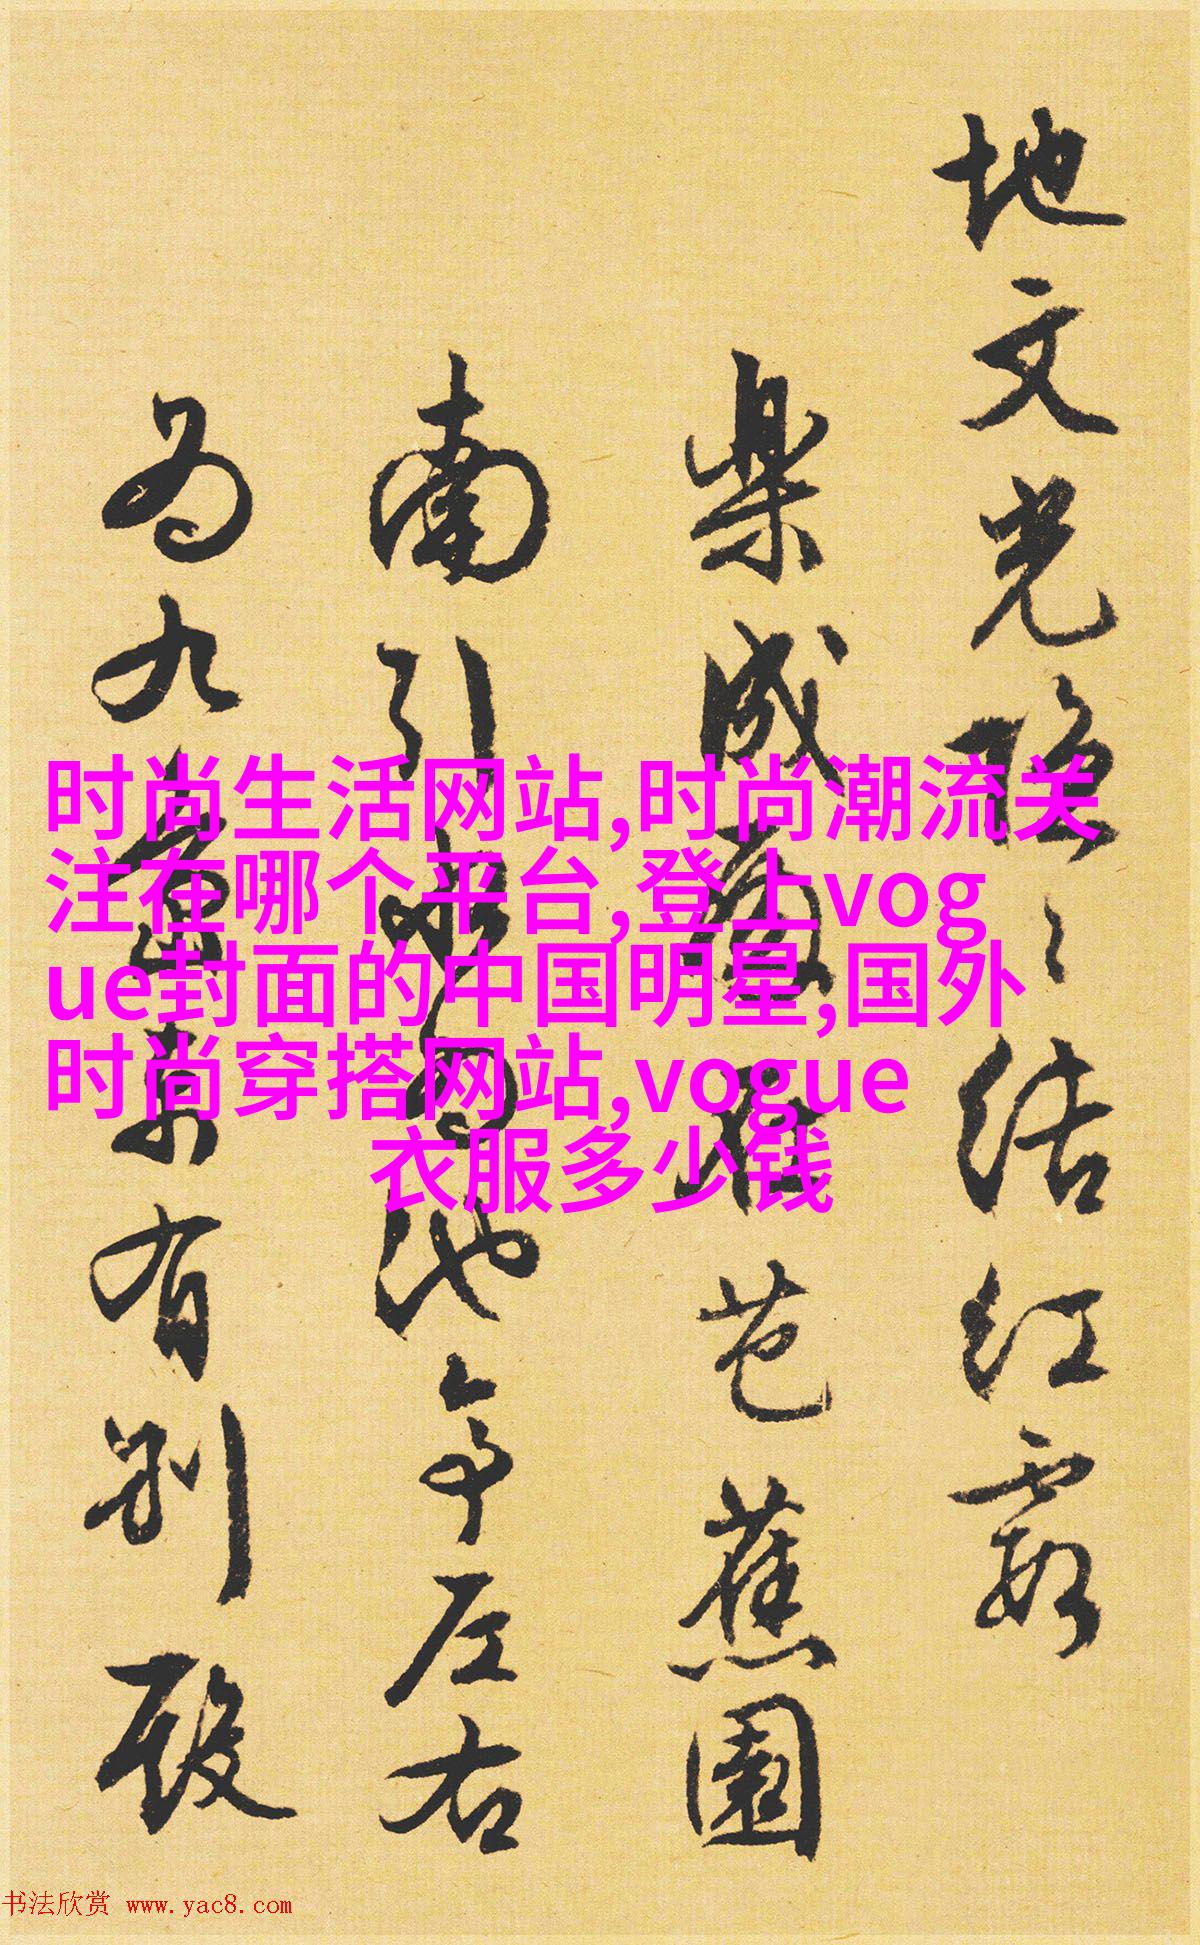 地文光隐〻结红霞
樂成
芭蕉園
南引
池 亭左右
为九
有别殿
时尚生活网站,时尚潮流关
注在哪个平台,登上vog
ue封面的中国明星,国外
时尚穿搭网站,vogue
衣服多少钱
书法欣赏 www.yac8.com